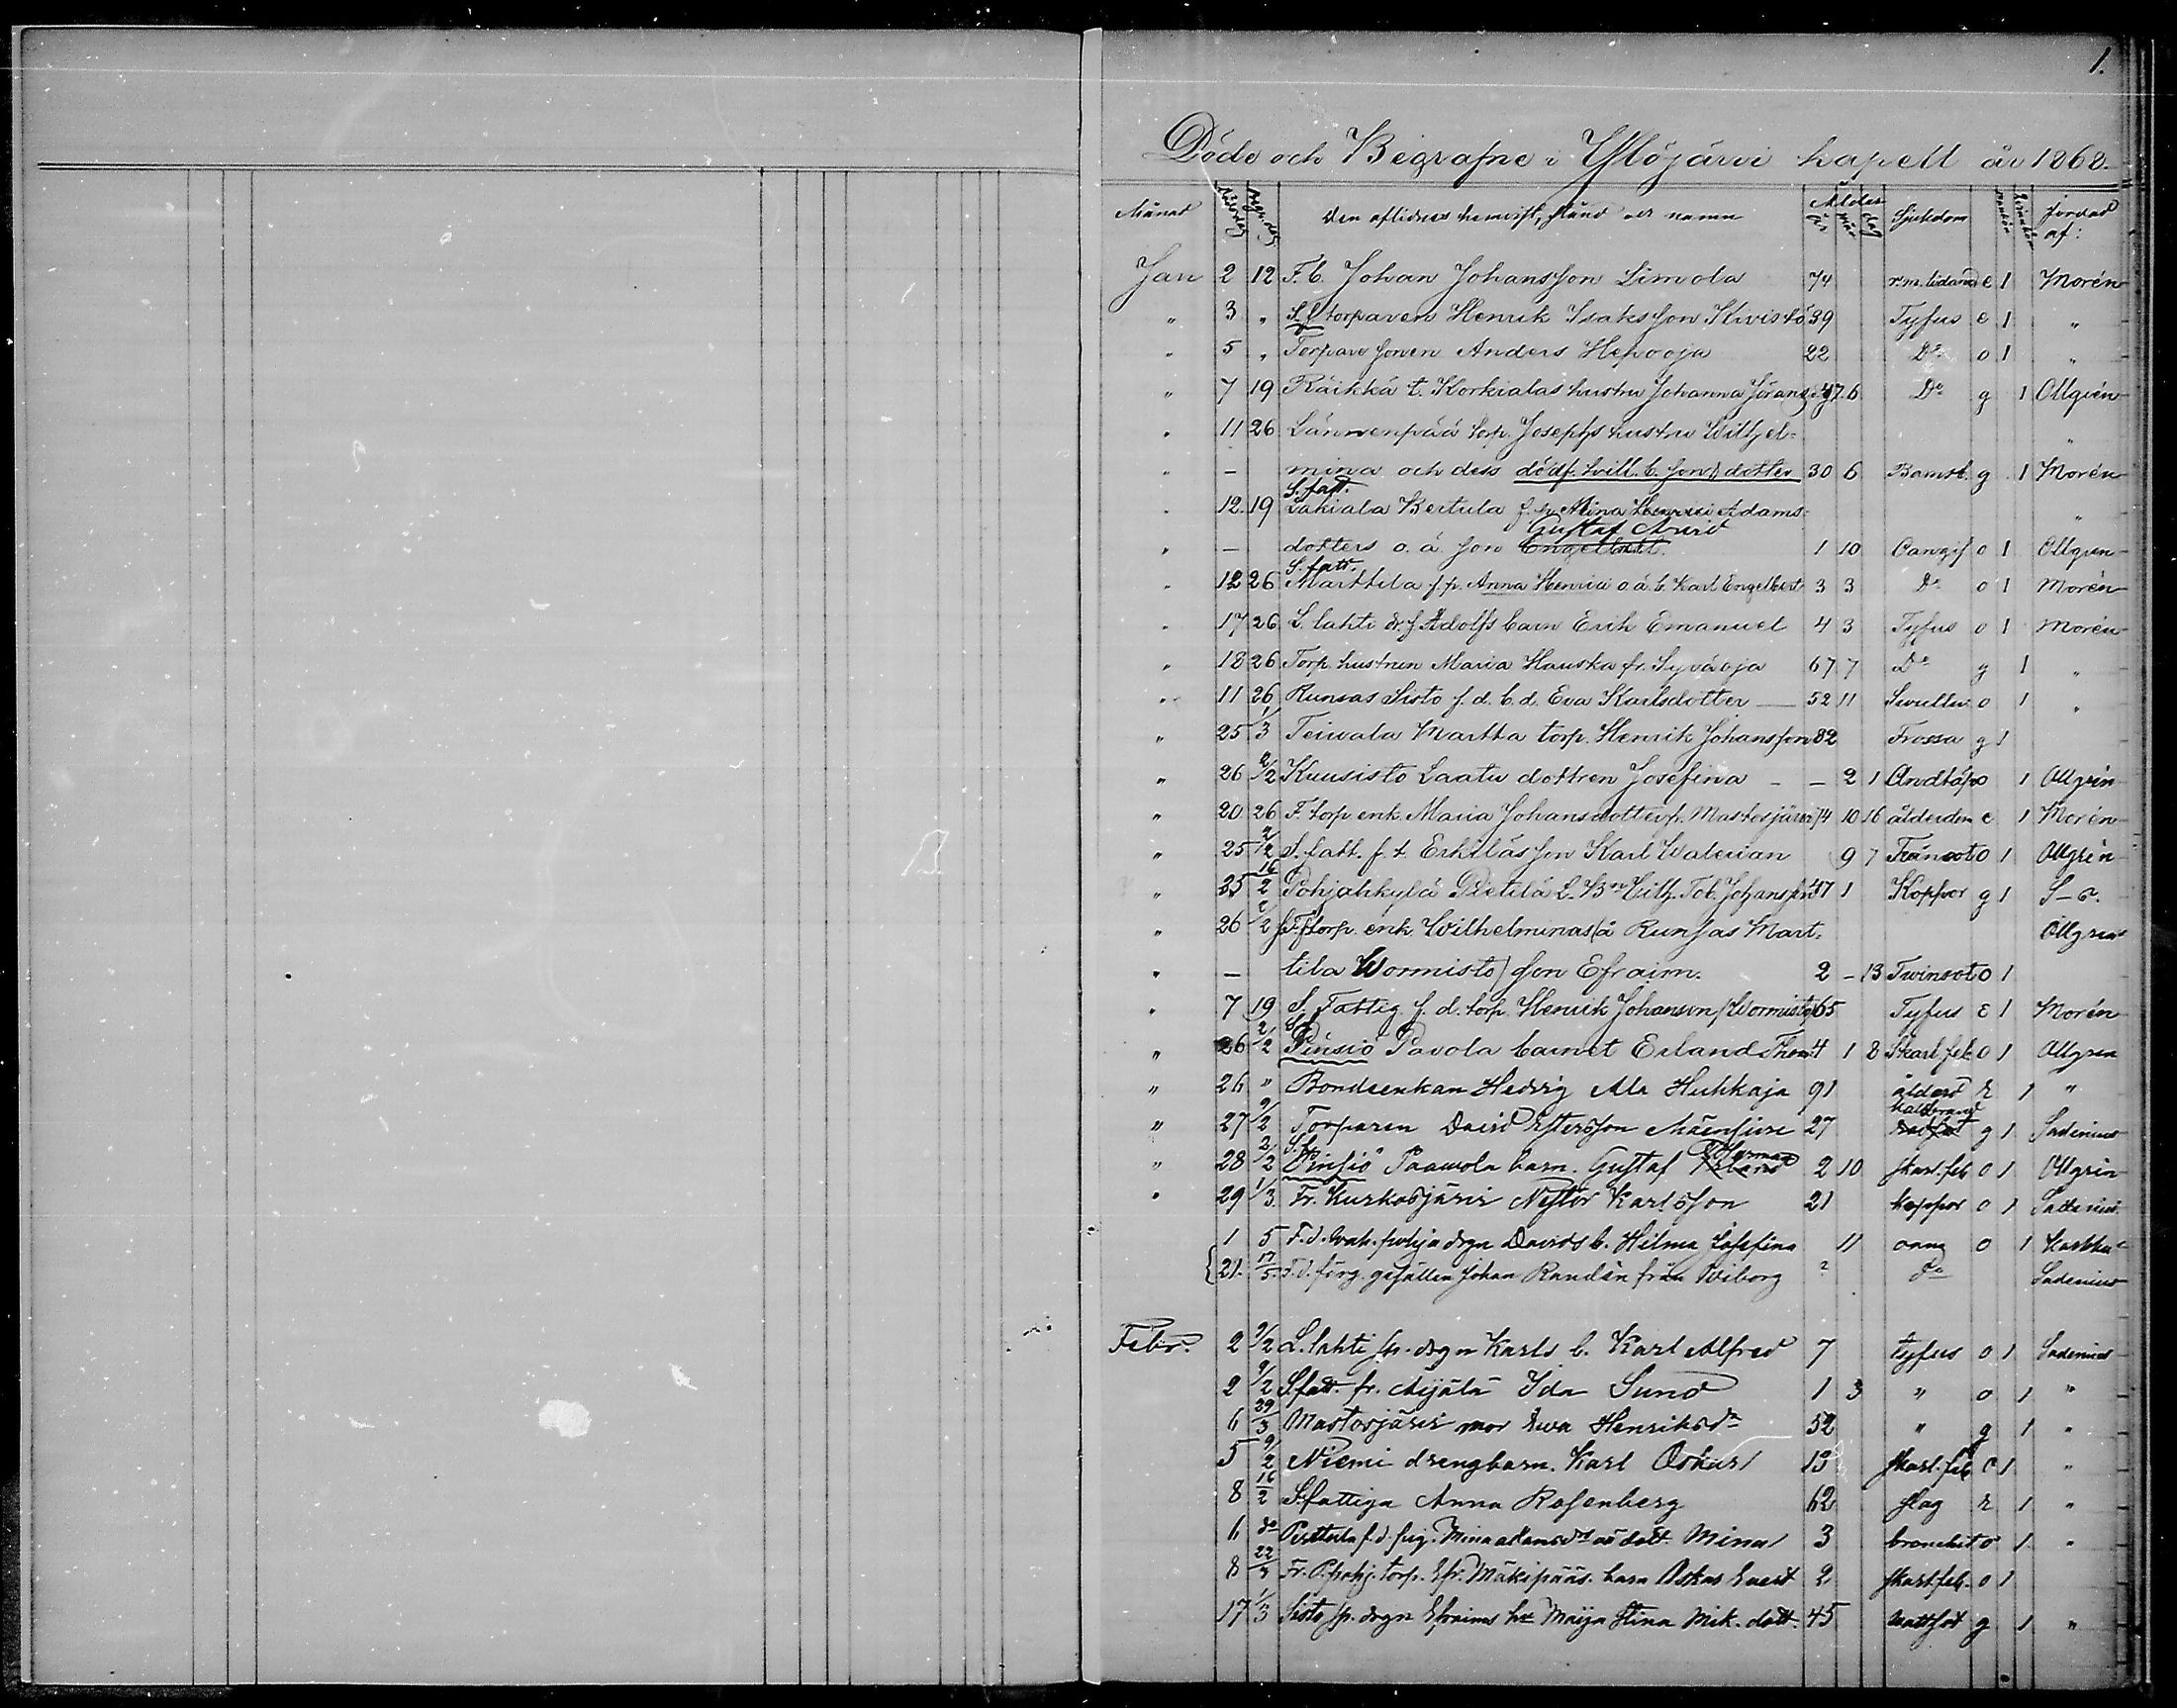 1.
Döde och Begrafne i Ylöjärvi kapell år 1868.
Månad Dödsdag Begr. dag Den aflidnes hemvist, stånd och namn Ålder år mån dag Sjukdom mankön qvinkön jordad af:
Jan 2 12 F. b. Johan Johansson Simola 74 e 1 Morén
" 3 " S. f. torparen Henrik Isaksson Kivistö 39 Tyfus e 1 "
" 5 " Torpare sonen Anders Hepooja 22 Do o 1 "
" 7 19 Räikkä t. Korkialas hustru Johanna 47 6 Do g 1 Ollgrén
" 11 26 Lännenpää torp. Josephs hustru Wilhel= "
" — mina och dess dödf. tvill. b. son o dotter 30 6 Barnsb. g 1 Morén
S. fatt.
" 12 19 Lakiala Bertula f. p. Mina Henrici Adams= "
Gustaf Arvid
" — dotters o. ä. son Engelbert. 1 10 Oangif o 1 Ollgren
S. fatt.
" 12 26 Marttila f. p. Anna Henrici o. ä. b. Karl Engelbert 3 3 Do o 1 Morén
" 17 26 L. lahti dr. f. Adolfs barn Erik Emanuel 4 3 Tyfus o 1 Morén
" 18 26 Torp. hustrun Maria Hauska fr. Syväoja 67 7 Do g 1 "
" 11 26 Runsas Sisto f. d. b. d. Eva Karlsdotter — 52 11 o 1 "
" 25 1/3 Teivala Martta torp. Henrik Johansson 82 Frossa g 1
" 26 2/2 Kuusisto Laatu dottren Josefina — — 2 1 Andtäpp o 1 Ollgrén
" 20 26 F. torp enk. Maria Johansdotter fr. Mastosjärvi 74 10 16 ålderdom e 1 Morén
" 25 2/2 S. fatt. f. t. Erkiläs son Karl Walerian 9 7 Tränsot o 1 Ollgrén
" 25 16/2 Pohjankylä Pietilä L. Bn Wilh. Tob. Johansson 47 1 Koppor g 1 S—s.
" 26 2/2 f. F. torp. enk. Wilhelminas (å Runsas Mart= Ollgren
" — tila Wormisto) son Efraim. 2 — 13 Twinsot o 1
" 7 19 S. Fattig. f. d. torp. Henrik Johanson (Wormisto) 65 Tyfus e 1 Morén
" 26 2/2 Pinsiö Pavola barnet Erland Thom 4 1 8 Skarl. feb. o 1 Ollgren
" 26 " Bondeenkan Hedvig Ala Huhkaja 91 ålderd e 1 "
" 27 9/2 Torparen David Estersson Mäensivu 27 Kallbrand g 1 Sadenius
" 28 2/2 Pinsiö Paawola barn. Gustaf Herman 2 10 skarl. feb. o 1 Ollgrén
" 29 1/3 Fr. Kurkosjärvi Nestor Karlsson 21 koppor o 1 Sadenius
1 5 F. d. Wah. pohja drgn Davids b. Hilma Josefina 11 oang o 1
21. 17/5. F. d. färg. gesällen Johan Randén från Wiborg ? Do Sadenius
Febr. 2 9/2 L. lahti sp. drgn Karls b. Karl Alfred 7 tyfus o 1 Sadenius
2 9/2 S. fatt. fr. Mijälä Ida Sund 1 3 " o 1 "
6 29/3 Mastosjärvi mor Ewa Henriksdr 52 " g 1 "
5 9/2 Niemi drengbarn. Karl Oskar 13 skarl. feb. o 1 "
8 16/2 S. fattiga Anna Rosenberg 62 slag e 1 "
6 do Perttula f. d. pig. Mina Adamsdrs oä dott. Mina 3 bronchit o 1 "
8 22/3 Fr. P. pohj. torp. Efr. Mäkipääs barn Oskar Evert 2 skarl. feb. o 1
17 1/3 Sisto sp. drgn Efraims hu Maija Stina Mik. dott. 45 g 1 "